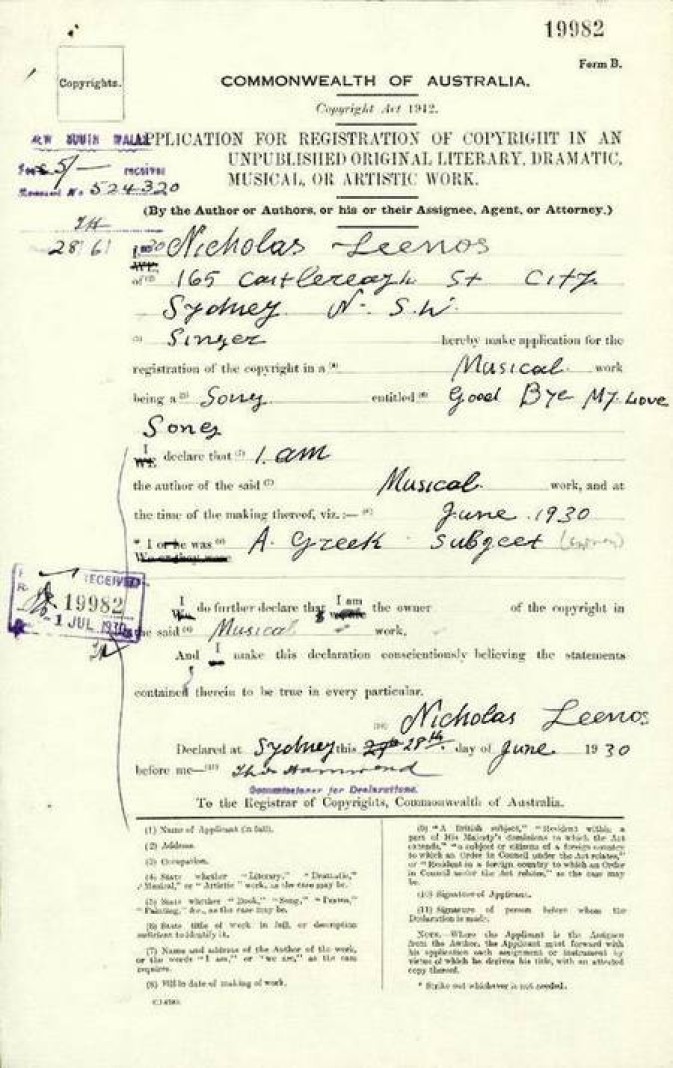 19982
Form B.
Copyrights.
COMMONWEALTH OF AUSTRALIA.
Copyright Act 1912.
NEW SOUTH WALES
APPLICATION FOR REGISTRATION OF COPYRIGHT IN AN
UNPUBLISHED ORIGINAL LITERARY, DRAMATIC,
MUSICAL, OR ARTISTIC WORK.
5/-
524320
(By the Author or Authors, or his or their Assignee, Agent, or Attorney.)
28/6/
I (1) Nicholas Leenos
WE
of (2) 165 Castlereagh St City
Sydney N. S.W.
(3) Singer hereby make application for the
registration of the copyright in a (4) Musical work
being a (5) Song entitled (6) Good Bye My Love
Song
I
WE declare that (7) I am
the author of the said (7) Musical work, and at
the time of the making thereof, viz. :— (8) June 1930
* I or he was (9) A Greek subgeet
We or they were
RECEIVED
19982
1 JUL 1930
I
We do further declare that I am the owner of the copyright in
the said Musical work.
And I make this declaration conscientiously believing the statements
contained therein to be true in every particular.
(10) Nicholas Leenos
Declared at Sydney this 27th 28th day of June 1930
before me—(11)
Commissioner for Declarations.
To the Registrar of Copyrights, Commonwealth of Australia.
(1) Name of Applicant (in full).
(2) Address.
(3) Occupation.
(4) State whether "Literary," "Dramatic,"
"Musical," or "Artistic" work, as the case may be.
(5) State whether "Book," "Song," "Drama,"
"Painting," &c., as the case may be.
(6) State title of work in full, or description
sufficient to identify it.
(7) Name and address of the Author of the work,
or the words "I am," or "we are," as the case
requires.
(8) Fill in date of making of work.
(9) "A British subject," "Resident within a
part of His Majesty's dominions to which the Act
extends," "a subject or citizen of a foreign country
to which an Order in Council under the Act relates,"
or "Resident in a foreign country to which an Order
in Council under the Act relates," as the case may
be.
(10) Signature of Applicant.
(11) Signature of person before whom the
Declaration is made.
NOTE.—Where the Applicant is the Assignee
from the Author, the Applicant must forward with
his application each assignment or instrument by
virtue of which he derives his title, with an attested
copy thereof.
* Strike out whichever is not needed.